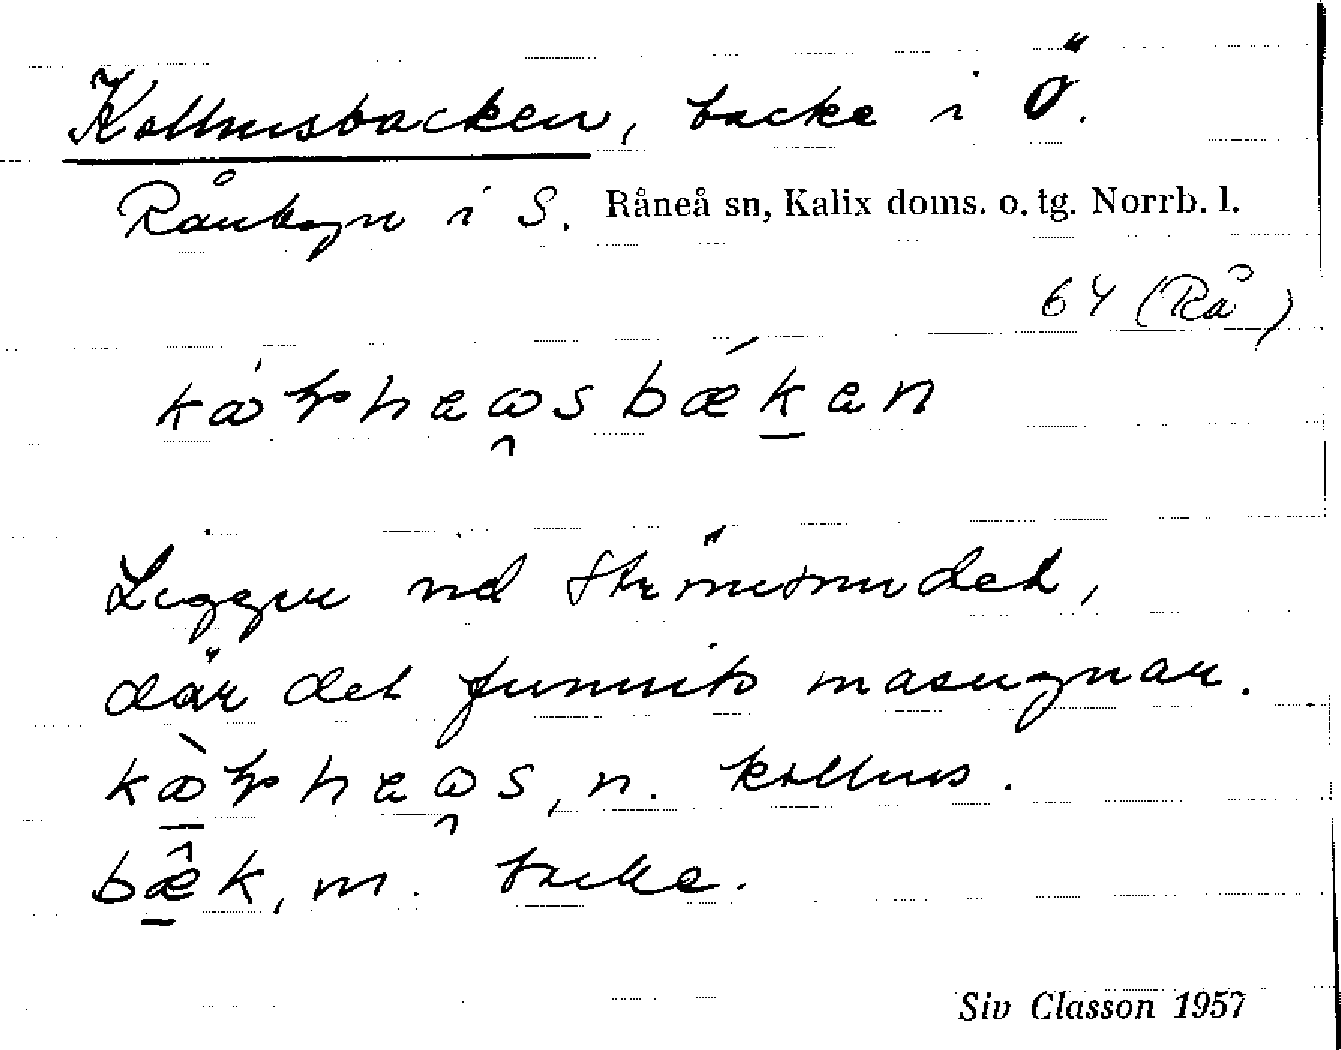 Kolhusbacken, backe i Ö.
Rånbyn i S. Råneå sn, Kalix doms. o. tg. Norrb. l.
64 (Rå)
Ligger vid Strömsundet,
där det funnits masugnar.
n. kolhus.
bæ̂k, m. backe.
Siv Classon 1957